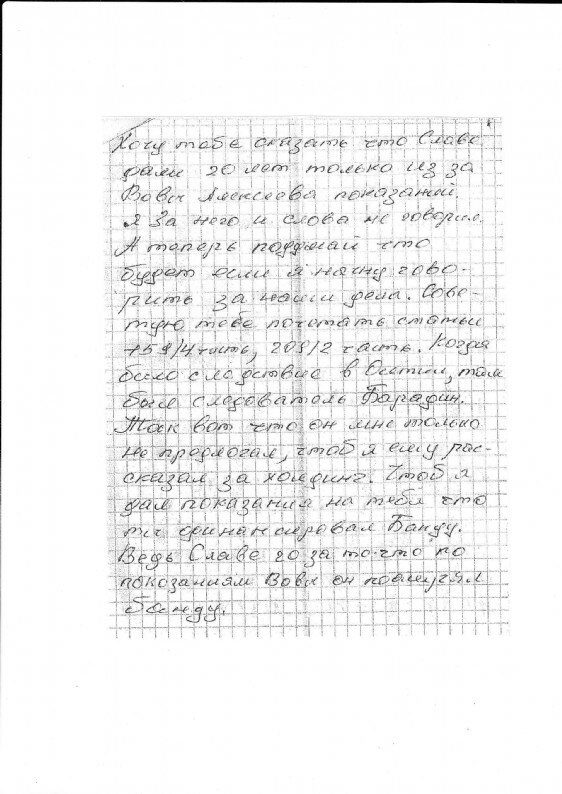 Хочу тебе сказать что Славе
дали 20 лет только из за
Вовы Алексеева показаний.
Я За него и слова не говорил.
А теперь подумай что
будет если я начну гово-
рить за наши дела. Сове-
тую тебе почетать статьи
159/4 часть, 209/2 часть. Когда
было следствие в Осетии, там
был следователь Барадин.
Так вот что он мне только
не предлогал, чтоб я ему рас-
сказал за холдинг. Чтоб я
дал показания на тебя что
ты финансировал Банду.
Ведь Славе 20 за то что по
показаниям Вовы он
банду.